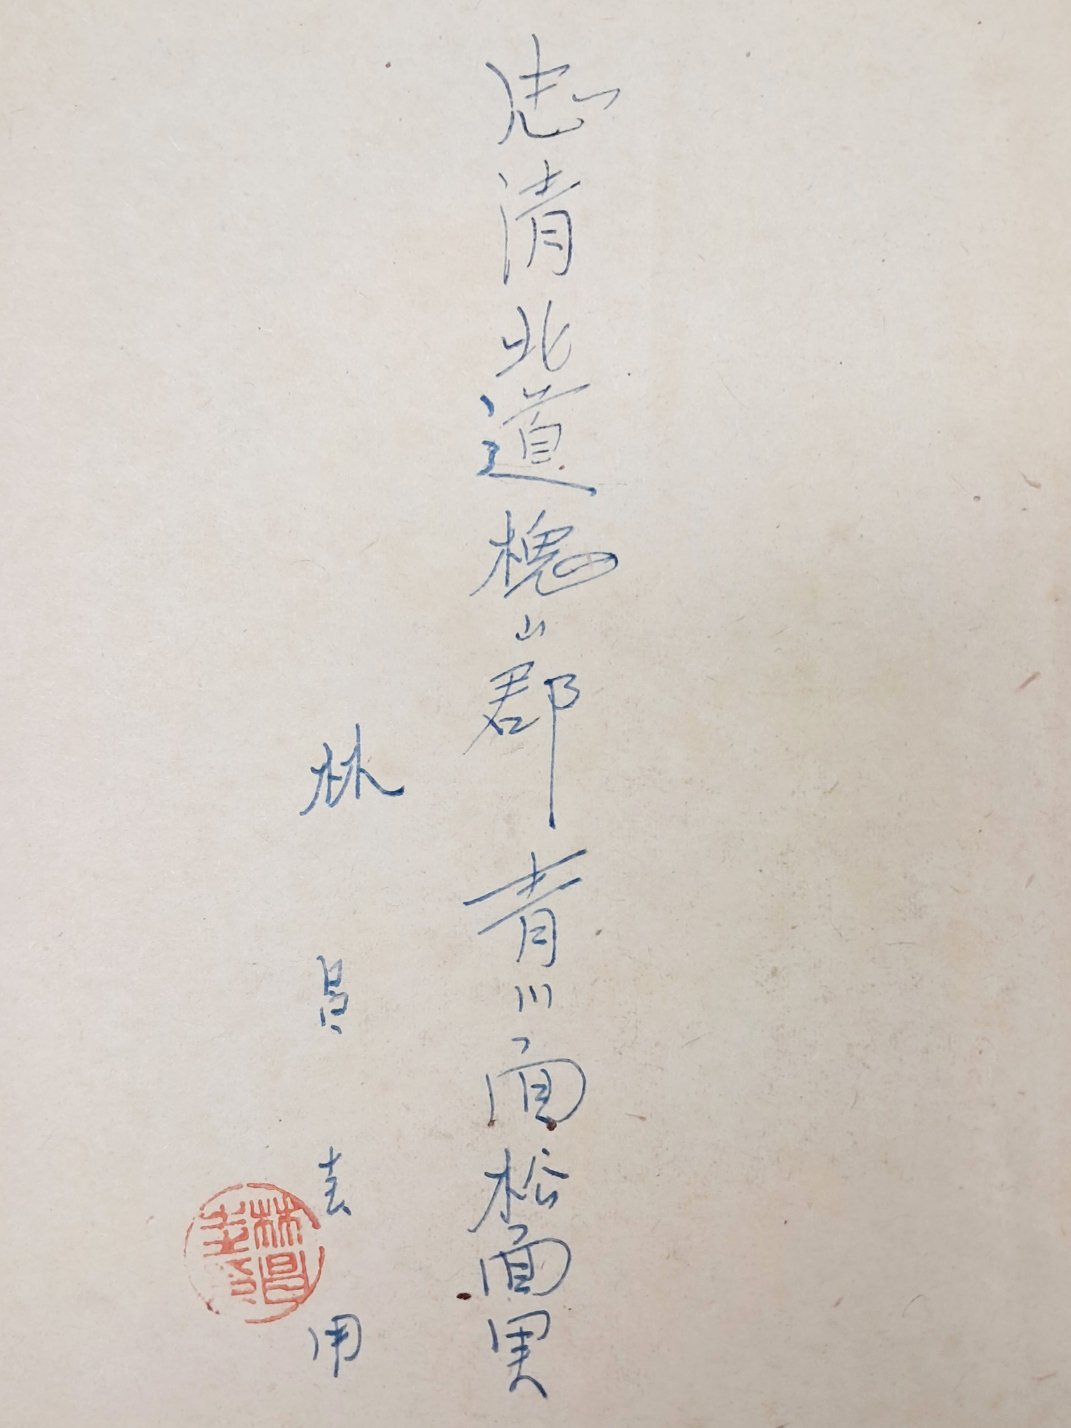 忠清北道槐山郡青川面松面里
林昌用